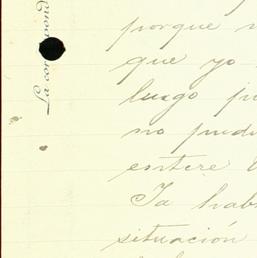 La cor
pond
porque
que yo
luego
no pud
entere
Ya hab
situación